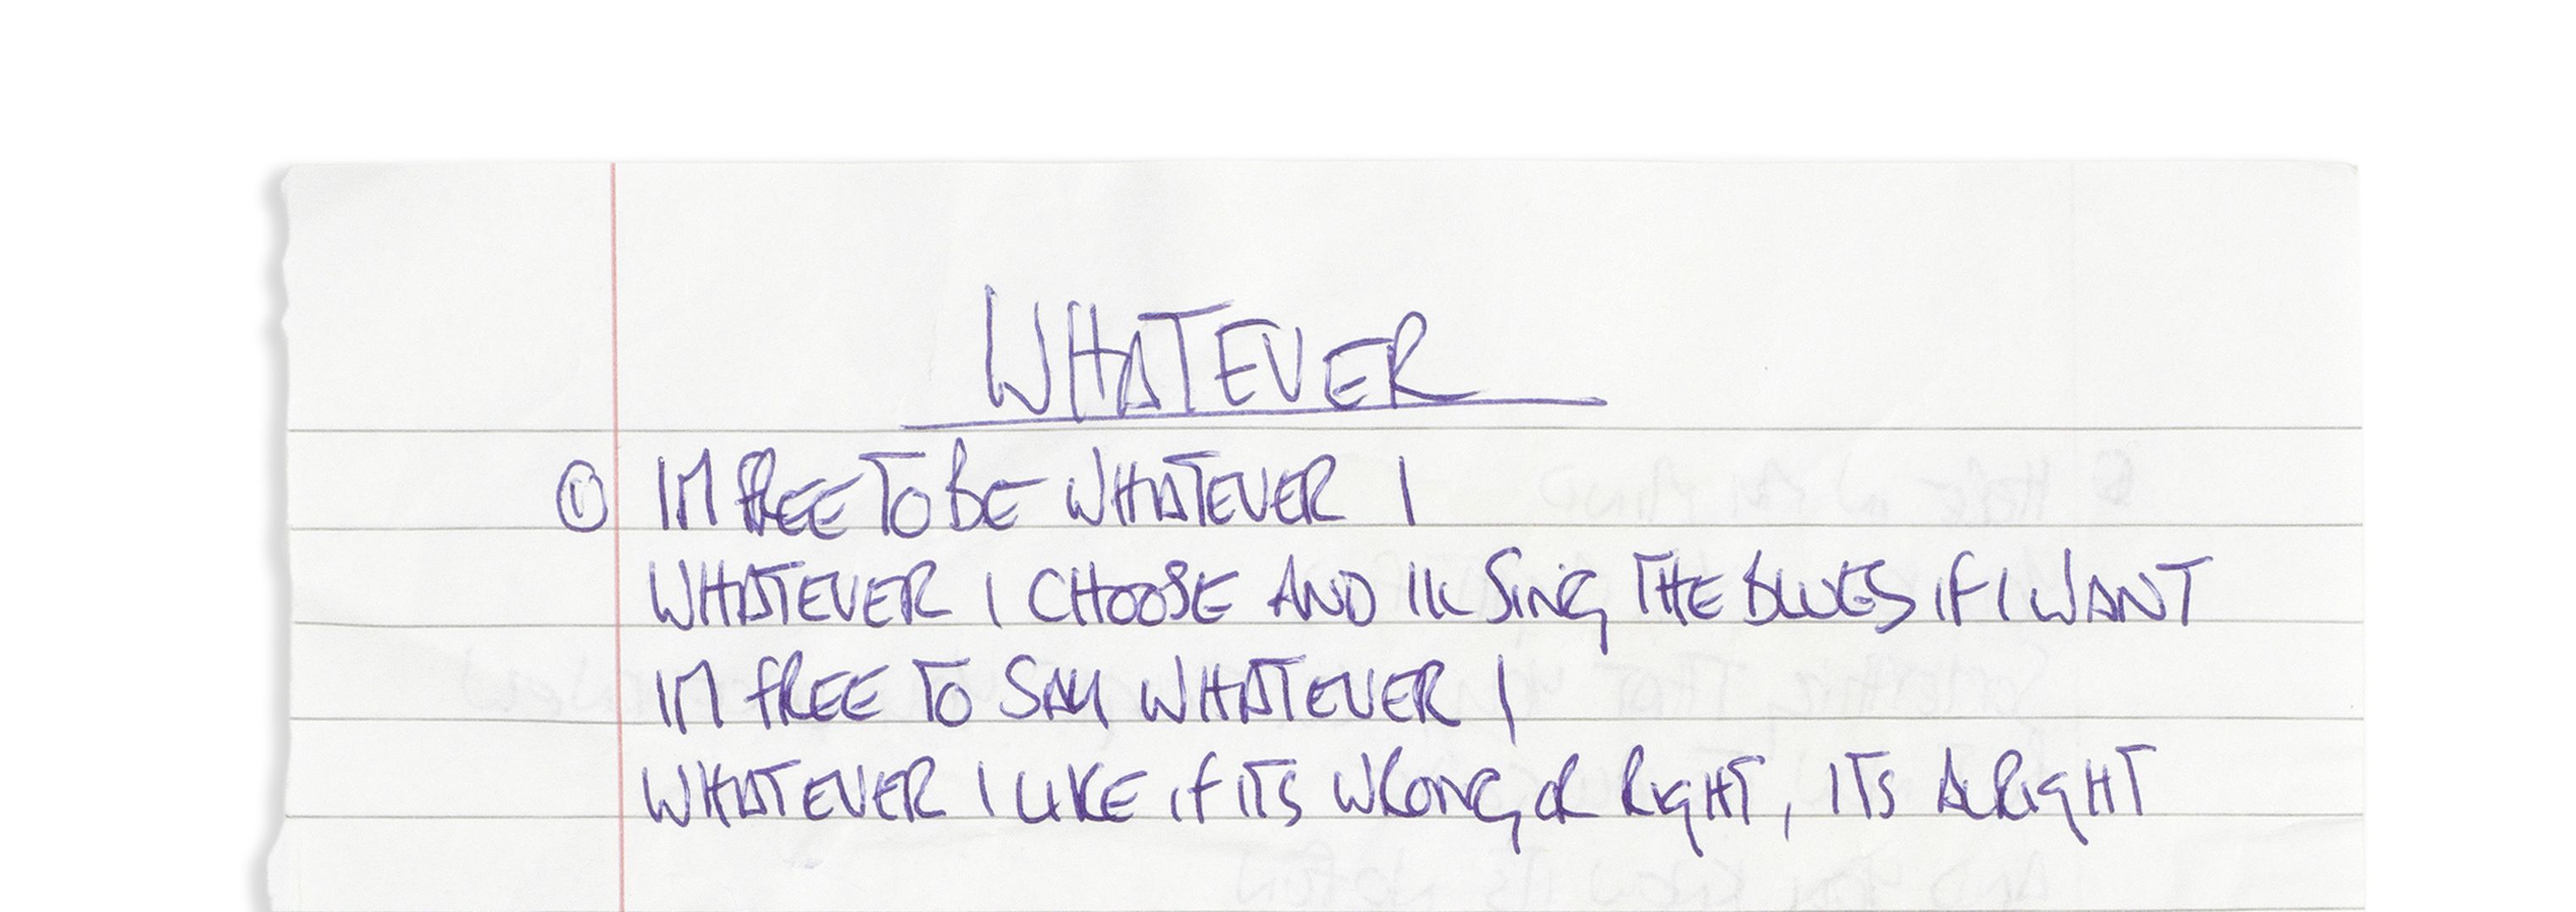 WHATEVER
① IM FREE TO BE WHATEVER I
WHATEVER I CHOOSE AND ILL SING THE BLUES IF I WANT
IM FREE TO SAY WHATEVER I
WHATEVER I LIKE IF ITS WRONG OR RIGHT, ITS ALRIGHT